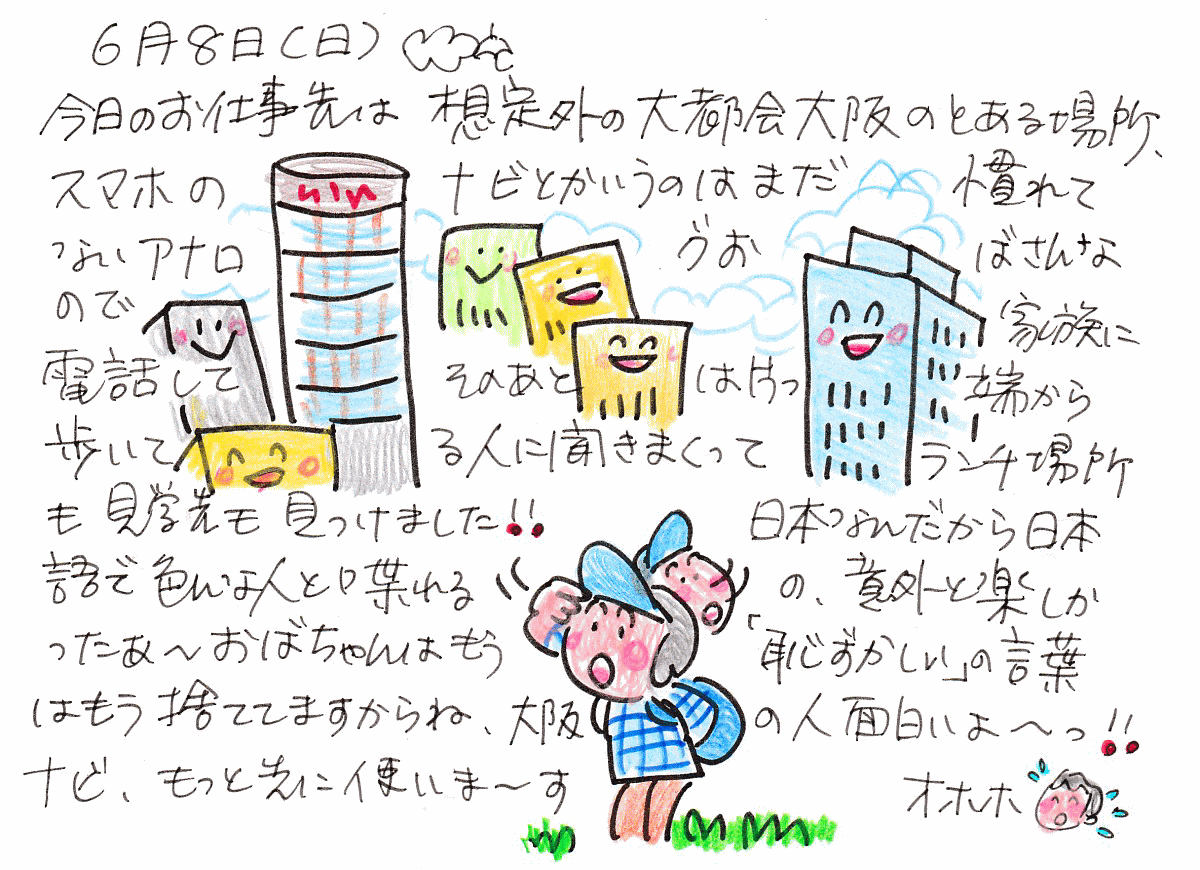 6月8日(日)
今日のお仕事先は 想定外の大都会大阪のとある場所、
スマホの ナビとかいうのはまだ 慣れて
ないアナロ グお ばさんな
ので 家族に
電話して そのあと は片っ 端から
歩いて る人に聞きまくって ランチ場所
も見学先も 見つけました!! 日本なんだから日本
語で色んな人と喋れる の、意外と楽しか
ったぁ〜おばちゃんはもう 「恥ずかしい」の言葉
はもう捨ててますからね、大阪 の人面白いよ〜っ!!
ナビ、もっと先に使いま〜す オホホ